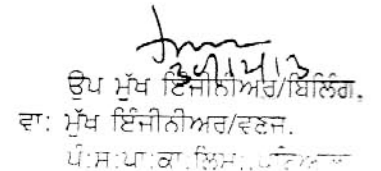 30/4/13
ਉਪ ਮੁੱਖ ਇੰਜੀਨੀਅਰ/ਬਿਲਿੰਗ,
ਵਾ: ਮੁੱਖ ਇੰਜੀਨੀਅਰ/ਵਣਜ.
ਪੰ:ਸ:ਪਾ:ਕਾ:ਲਿਮ:, ਪਟਿਆਲਾ